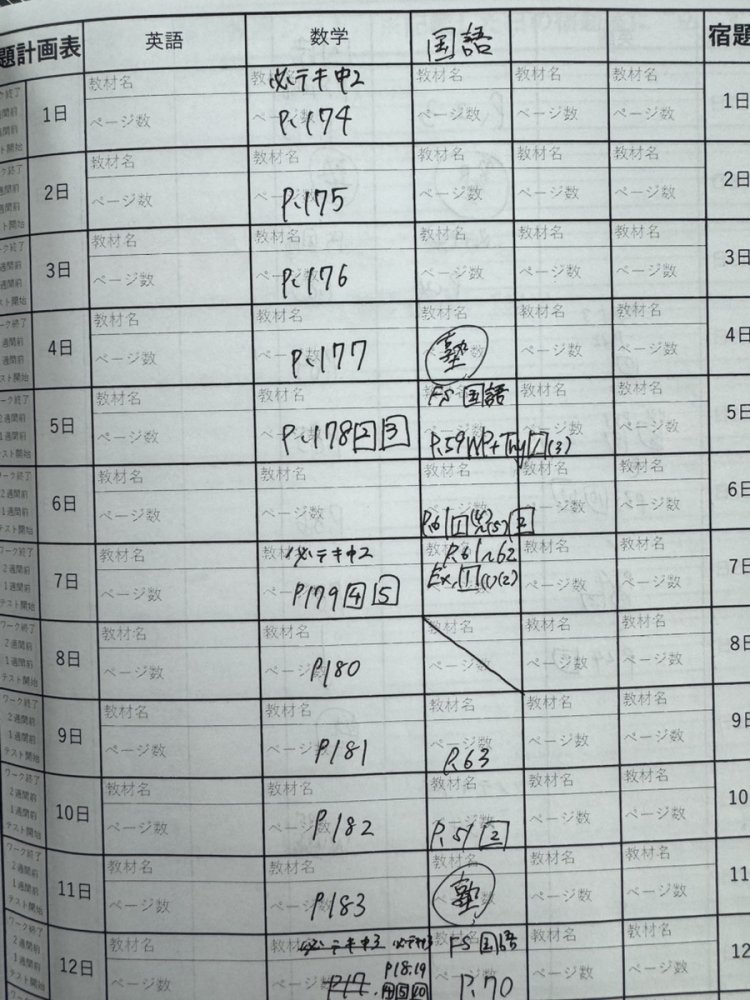 題計画表 英語 数学 国語 宿題
ワーク終了
1週間前
テスト開始
1日 教材名 教材名 必テキ中2 教材名 教材名 教材名 1日
ページ数 ページ数 P.174 ページ数 ページ数 ページ数
2日 教材名 教材名 教材名 教材名 教材名 2日
ページ数 ページ数 P.175 ページ数 ページ数 ページ数
3日 教材名 教材名 教材名 教材名 教材名 3日
ページ数 ページ数 P.176 ページ数 ページ数 ページ数
ワーク終了
1週間前
テスト開始
4日 教材名 教材名 教材名 教材名 教材名 4日
ページ数 ページ数 P.177 ページ数 塾 ページ数 ページ数
5日 教材名 教材名 教材名 FS 国語 教材名 教材名 5日
ページ数 ページ数 P.178 2 3 ページ数 P.59 WP+Try 1 (3) ページ数 ページ数
ワーク終了
2週間前
1週間前
テスト開始
6日 教材名 教材名 教材名 教材名 教材名 6日
ページ数 ページ数 ページ数 P.61 1 (4)~(5) 2 ページ数 ページ数
ワーク終了
2週間前
1週間前
テスト開始
7日 教材名 教材名 必テキ中2 教材名 P.61~62 教材名 教材名 7日
ページ数 ページ数 P179 4 5 ページ数 Ex. 1 (1)(2) ページ数 ページ数
ワーク終了
2週間前
1週間前
テスト開始
8日 教材名 教材名 教材名 教材名 教材名 8日
ページ数 ページ数 P.180 ページ数 ページ数 ページ数
ワーク終了
2週間前
1週間前
テスト開始
9日 教材名 教材名 教材名 教材名 教材名 9日
ページ数 ページ数 P.181 ページ数 P.63 ページ数 ページ数
ワーク終了
2週間前
1週間前
テスト開始
10日 教材名 教材名 教材名 教材名 教材名 10
ページ数 ページ数 P.182 ページ数 P.59 2 ページ数 ページ数
ワーク終了
2週間前
1週間前
テスト開始
11日 教材名 教材名 教材名 教材名 教材名 11
ページ数 ページ数 P.183 塾 ページ数 ページ数
ワーク終了
2週間前
1週間前
テスト開始
12日 教材名 教材名 必テキ中3 必テキ中3 教材名 FS 国語 教材名 教材名 12
ページ数 ページ数 P.17. P.18.19 4 5 10 ページ数 P.70 ページ数 ページ数